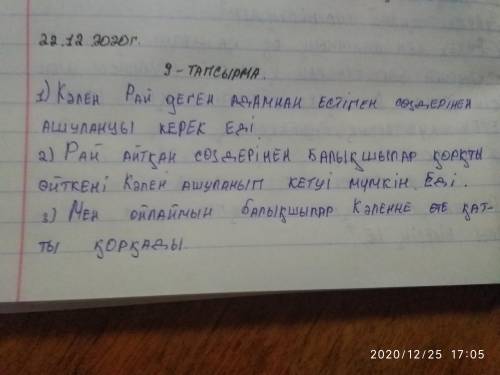 22.12.2020г.
9-тапсырма.
1) Кәлен Рай деген адамнан естіген сөздерінен
ашуланцы керек еді.
2) Рай айтқан сөздерінен балықшылар қорқты
өйткені Кәлен ашуланып кетуі мүмкін еді.
3) Мен ойлаймын балықшылар Кәленне өте қат-
ты қорқады
2020/12/25 17:05